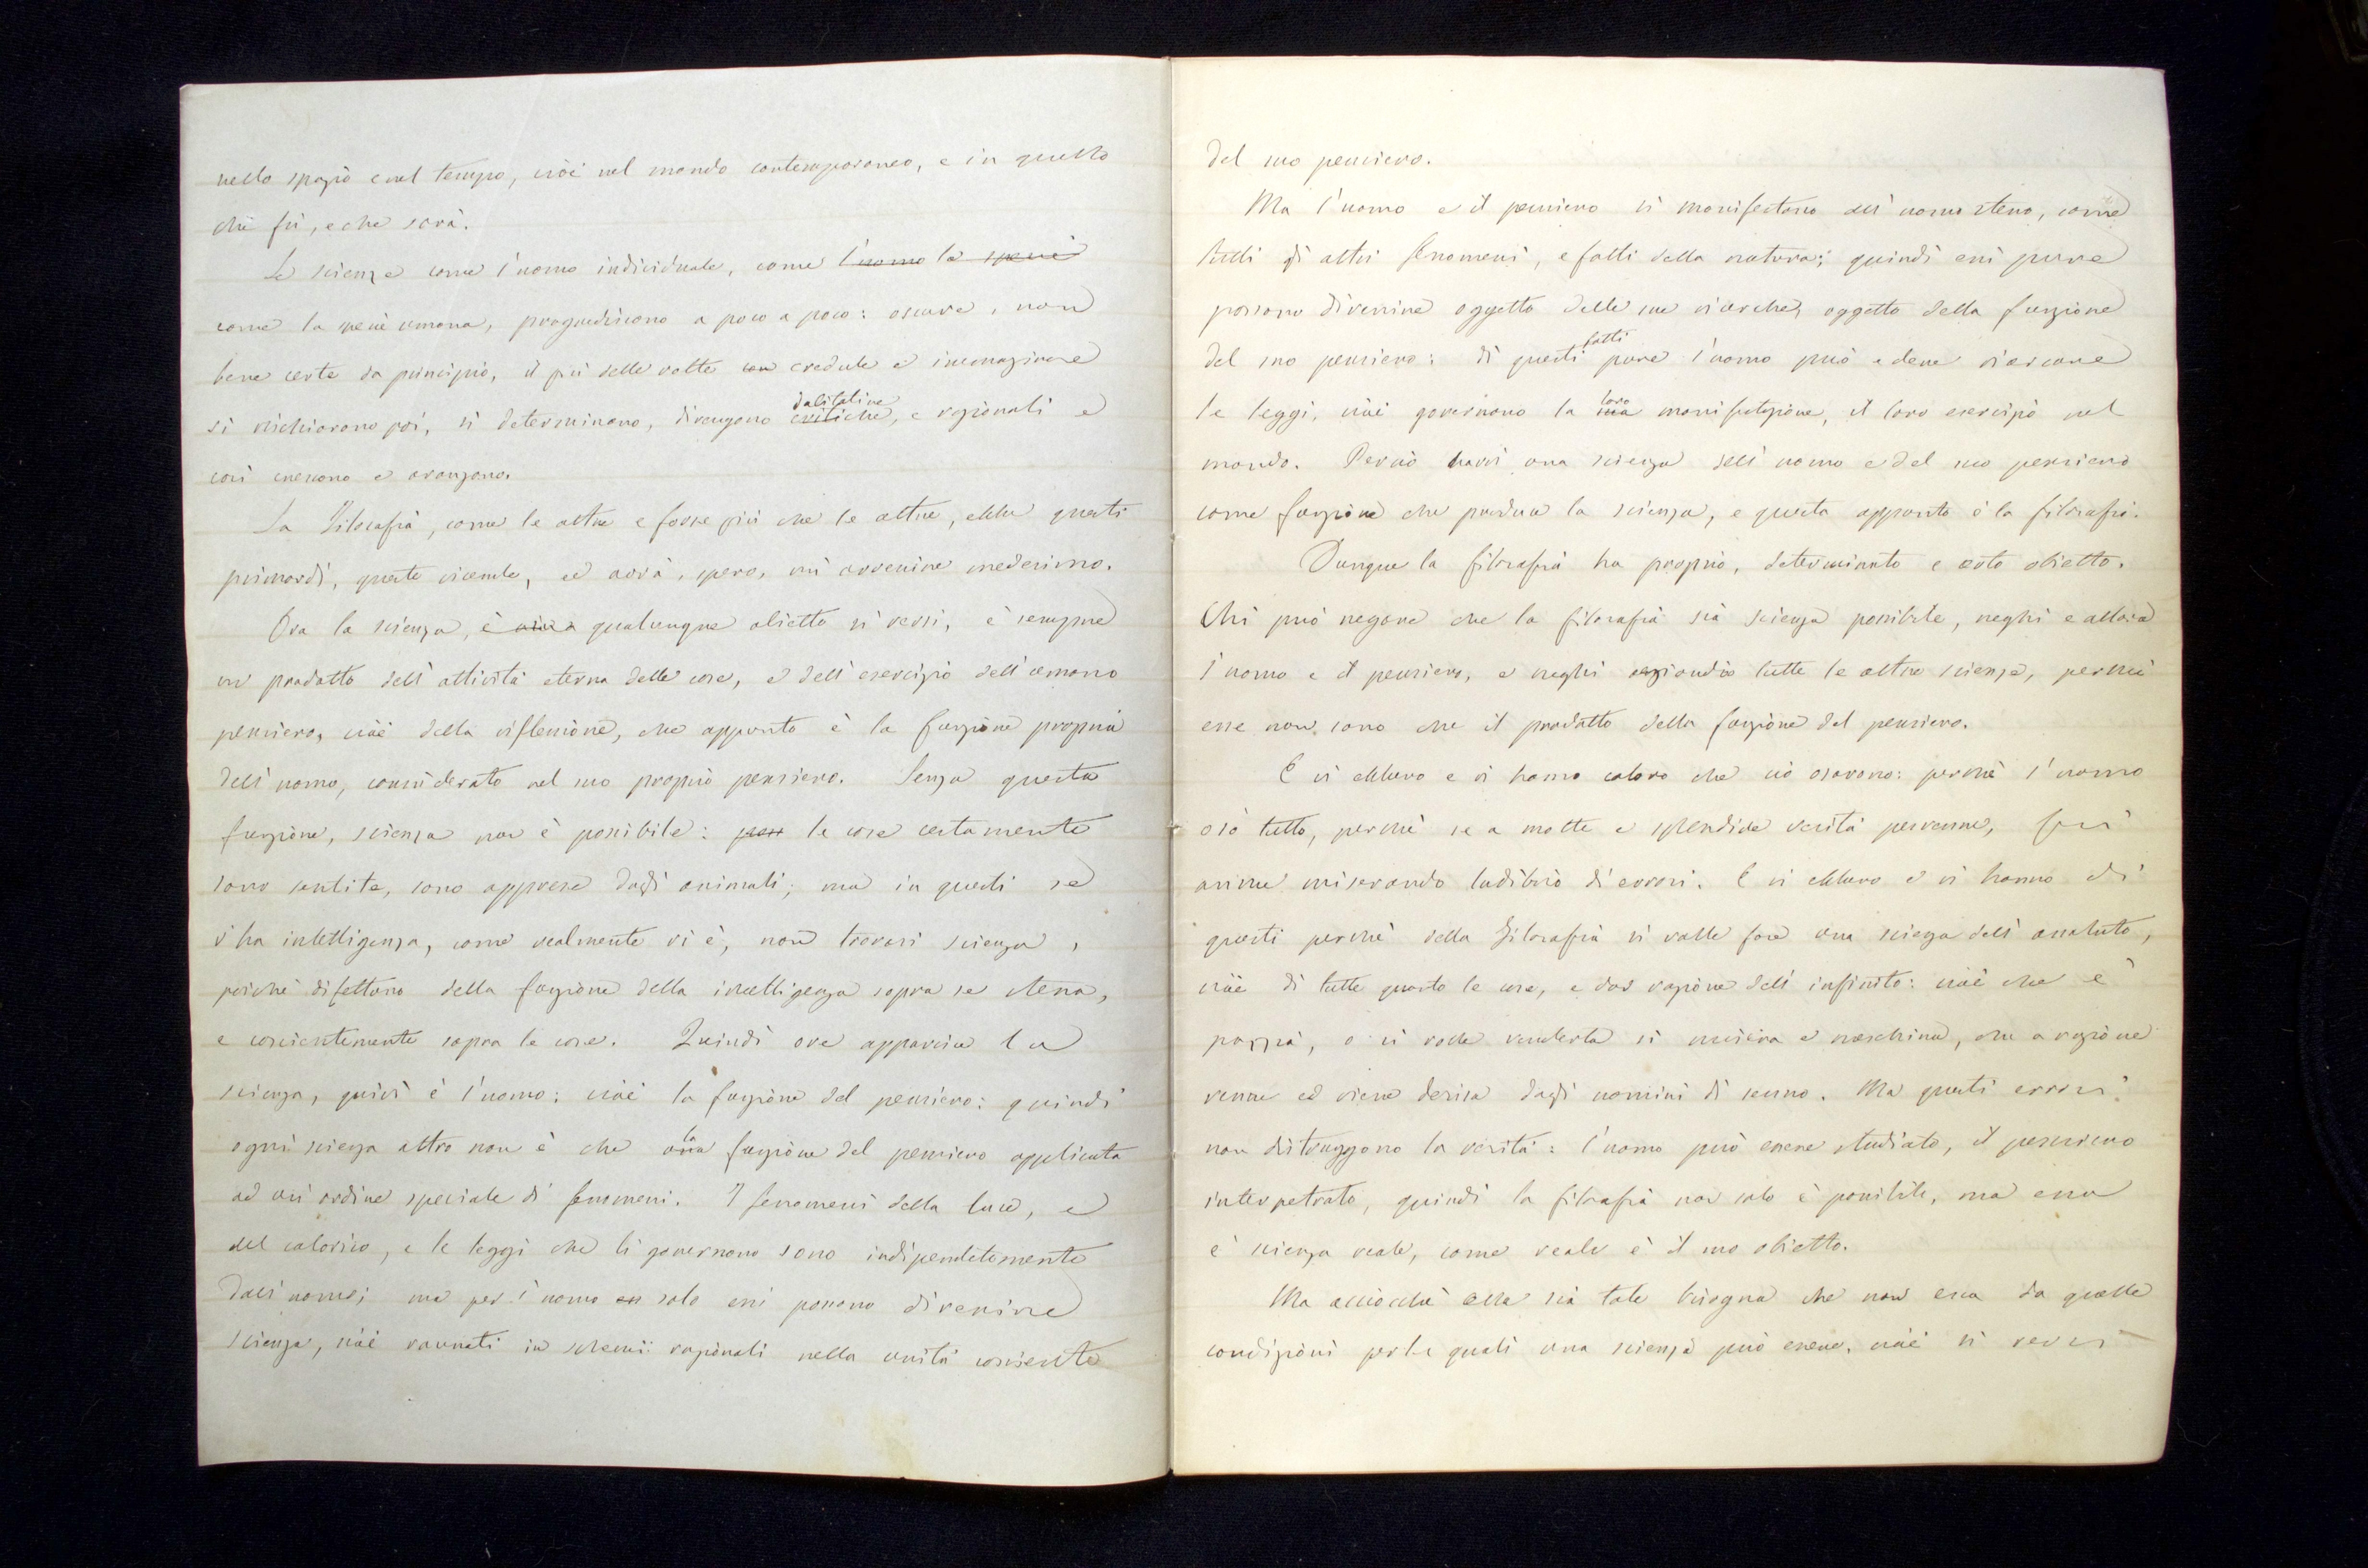 nello spazio e nel tempo, cioè nel mondo contemporaneo, e in quello
che fù, e che sarà.
Le scienze come l'uomo individuale, come l'uomo la specie
come la specie umana, progrediscono a poco a poco: oscure, non
bene certe da principio, il più delle volte credule e
si rischiarono poi, si determinano, divengono dubitative critiche, e razionali e
così crescono e avanzano.
La Filosofia, come le altre e forse più che le altre, ebbe questi
primordi, queste vicende, ed avrà, spero, un avvenire medesimo.
Ora la scienza, è qualunque obietto si versi, è sempre
un prodotto dell'attività eterna delle cose, e dell'esercizio dell'umano
pensiero, cioè della riflessione, che appunto è la funzione propria
dell'uomo, considerato nel suo proprio pensiero. Senza questa
funzione, scienza non è possibile: le cose certamente
sono sentite, sono apprese dagli animali; ma in questi se
v'ha intelligenza, come realmente vi è, non trovasi scienza,
poiché difettano della funzione della intelligenza sopra se stessa,
e coscientemente sopra le cose. Quindi ove apparisce la
scienza, quivi è l'uomo; cioè la funzione del pensiero: quindi
ogni scienza altro non è che la funzione del pensiero applicata
ad un ordine speciale di fenomeni. I fenomeni della luce, e
del calorico, e le leggi che li governano sono indipendetemente
dall'uomo; ma per l'uomo solo essi possono divenire
scienza, cioè raunati in schemi razionali nella unità cosciente
del suo pensiero.
Ma l'uomo e il pensiero si manifestano all'uomo stesso, come
tutti gli altri fenomeni, e fatti della natura; quindi essi pure
possono divenire oggetto delle sue ricerche, oggetto della funzione
del suo pensiero: di questi fatti pure l'uomo può e deve ricercare
le leggi, cioè governano la sua loro manifestazione, il loro esercizio nel
mondo. Perciò havvi una scienza dell'uomo e del suo pensiero
come funzione che produce la scienza, e questa appunto è la filosofia.
Dunque la filosofia ha proprio, determinato e certo obietto.
Chi può negare che la filosofia sia scienza possibile, neghi e allora
l'uomo e il pensiero, e neghi eziandio tutte le altre scienze, perché
esse non sono che il prodotto della funzione del pensiero.
E vi ebbero e vi hanno coloro che ciò osarono: perché l'uomo
osò tutto, perché se a molte e splendide verità pervenne, fu
anche miserando ludibrio di errori. E vi ebbero e vi hanno di
questi perché della Filosofia si volle fare una scienza dell'assoluto,
cioè di tutte quante le cose, e dar ragione dell'infinito: cioè che è
pazzia, o si volle renderla sì misera e meschina, che a ragione
venne ed viene derisa dagli uomini di senno. Ma questi errori
non distruggono la verità: l'uomo può essere studiato, il pensiero
interpetrato, quindi la filosofia non solo è possibile, ma essa
è scienza reale, come reale è il suo obietto.
Ma acciocché ella sia tale bisogna che non esca da quelle
condizioni per le quali una scienza può essere, cioè si versi